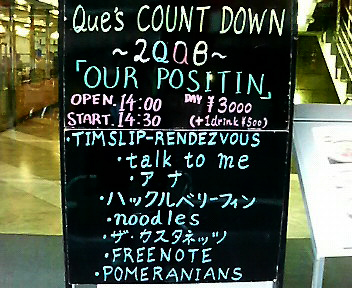 Que's COUNT DOWN
~2008~
「OUR POSITIN」
OPEN. 14:00 DAY ¥3000
START. 14:30 (+1drink ¥500)
・TIMSLIP-RENDEZVOUS
・talk to me
・アナ
・ハックルベリーフィン
・noodles
・ザ・カスタネッツ
・FREENOTE
・POMERANIANS